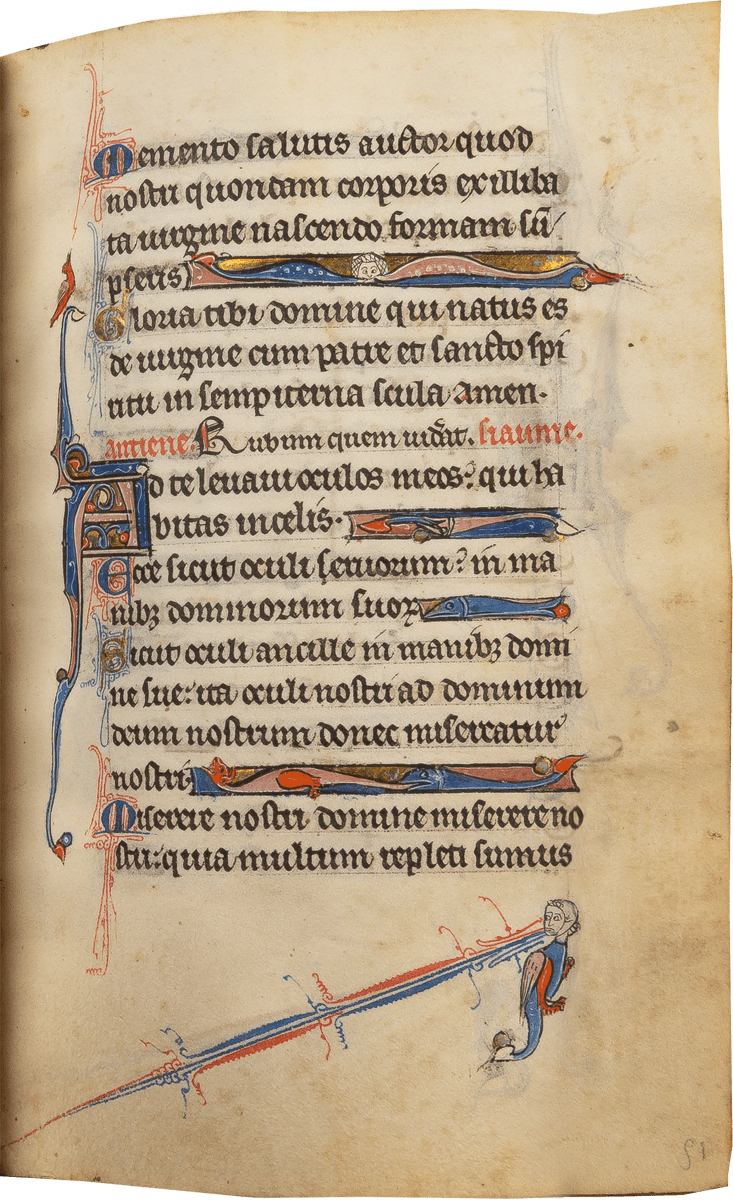 Memento salutis auctor quod
nostri quondam corporis ex illiba
ta uirgine nascendo formam sũ
pseris
Gloria tibi domine qui natus es
de uirgine cum patre et sancto spi
ritu in sempiterna secula amen.
antiene. Rubum quem uid'at. siaume.
Ad te leuaui oculos meos: qui ha
bitas in celis.
Ecce sicut oculi seruorum: in ma
nibꝫ dominorum suoꝝ
Sicut oculi ancille in manibꝫ domi
ne sue: ita oculi nostri ad dominum
deum nostrum donec misereatur
nostri
Miserere nostri domine miserere no
stri: quia multum repleti sumus
51